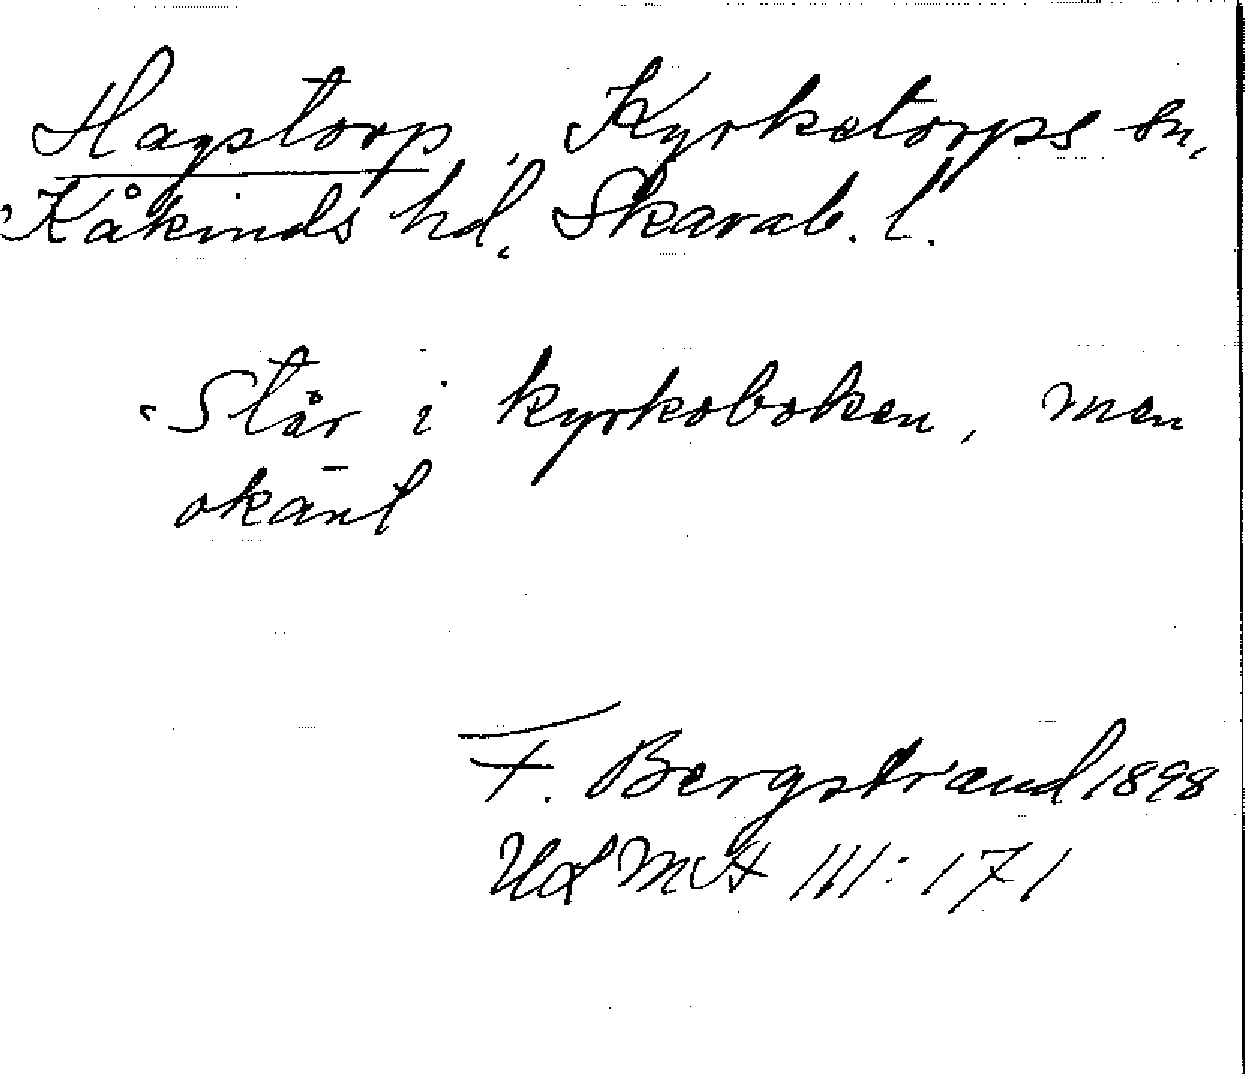 Hagstorp, Kyrketorps sn,
Kåkinds hd, Skarab. l.
Står i kyrkoboken, men
okänt
F. Bergstrand 1898
III: 171